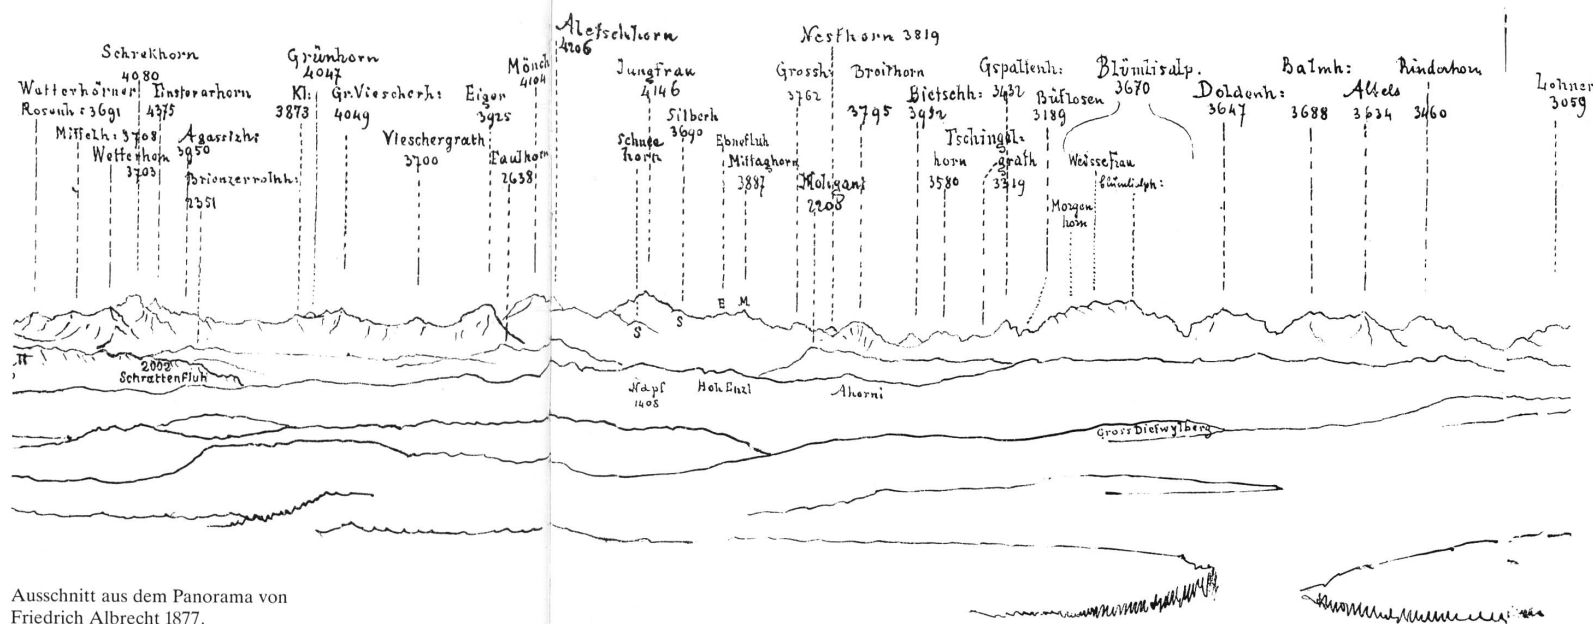 Wetterhörner
Rosenh: 3691
Mittelh: 3708
Wetterhorn
3703
Schrekhorn
4080
Finsterarhorn
4375
Agassizh:
3950
Brienzerrothh:
2351
Grünhorn
4047
Kl:
3873
Gr. Viescherh:
4049
Vieschergrath
3700
Eiger
3925
Faulhorn
2638
Mönch
4104
Aletschhorn
4206
Jungfrau
4146
Schnee
horn
Silberh
3690
Ebnefluh
Mittaghorn
3887
Grossh:
3762
Nesthorn 3819
Breithorn
3795
2208
Bietschh:
3952
Tschingel:
horn
3580
grath
3319
Gspaltenh:
3432
Büflosen
3189
Blümlisalp.
3670
Weissefrau
Blümlisalph:
Morgen
horn
Doldenh:
3647
Balmh:
3688
Altels
3634
Rinderhorn
3460
Lohner
3059
E
M
S
S
2002
Schrattenfluh
Napf
1408
Hoh Enzi
Ahorni
Gross Dietwylberg
Ausschnitt aus dem Panorama von
Friedrich Albrecht 1877.